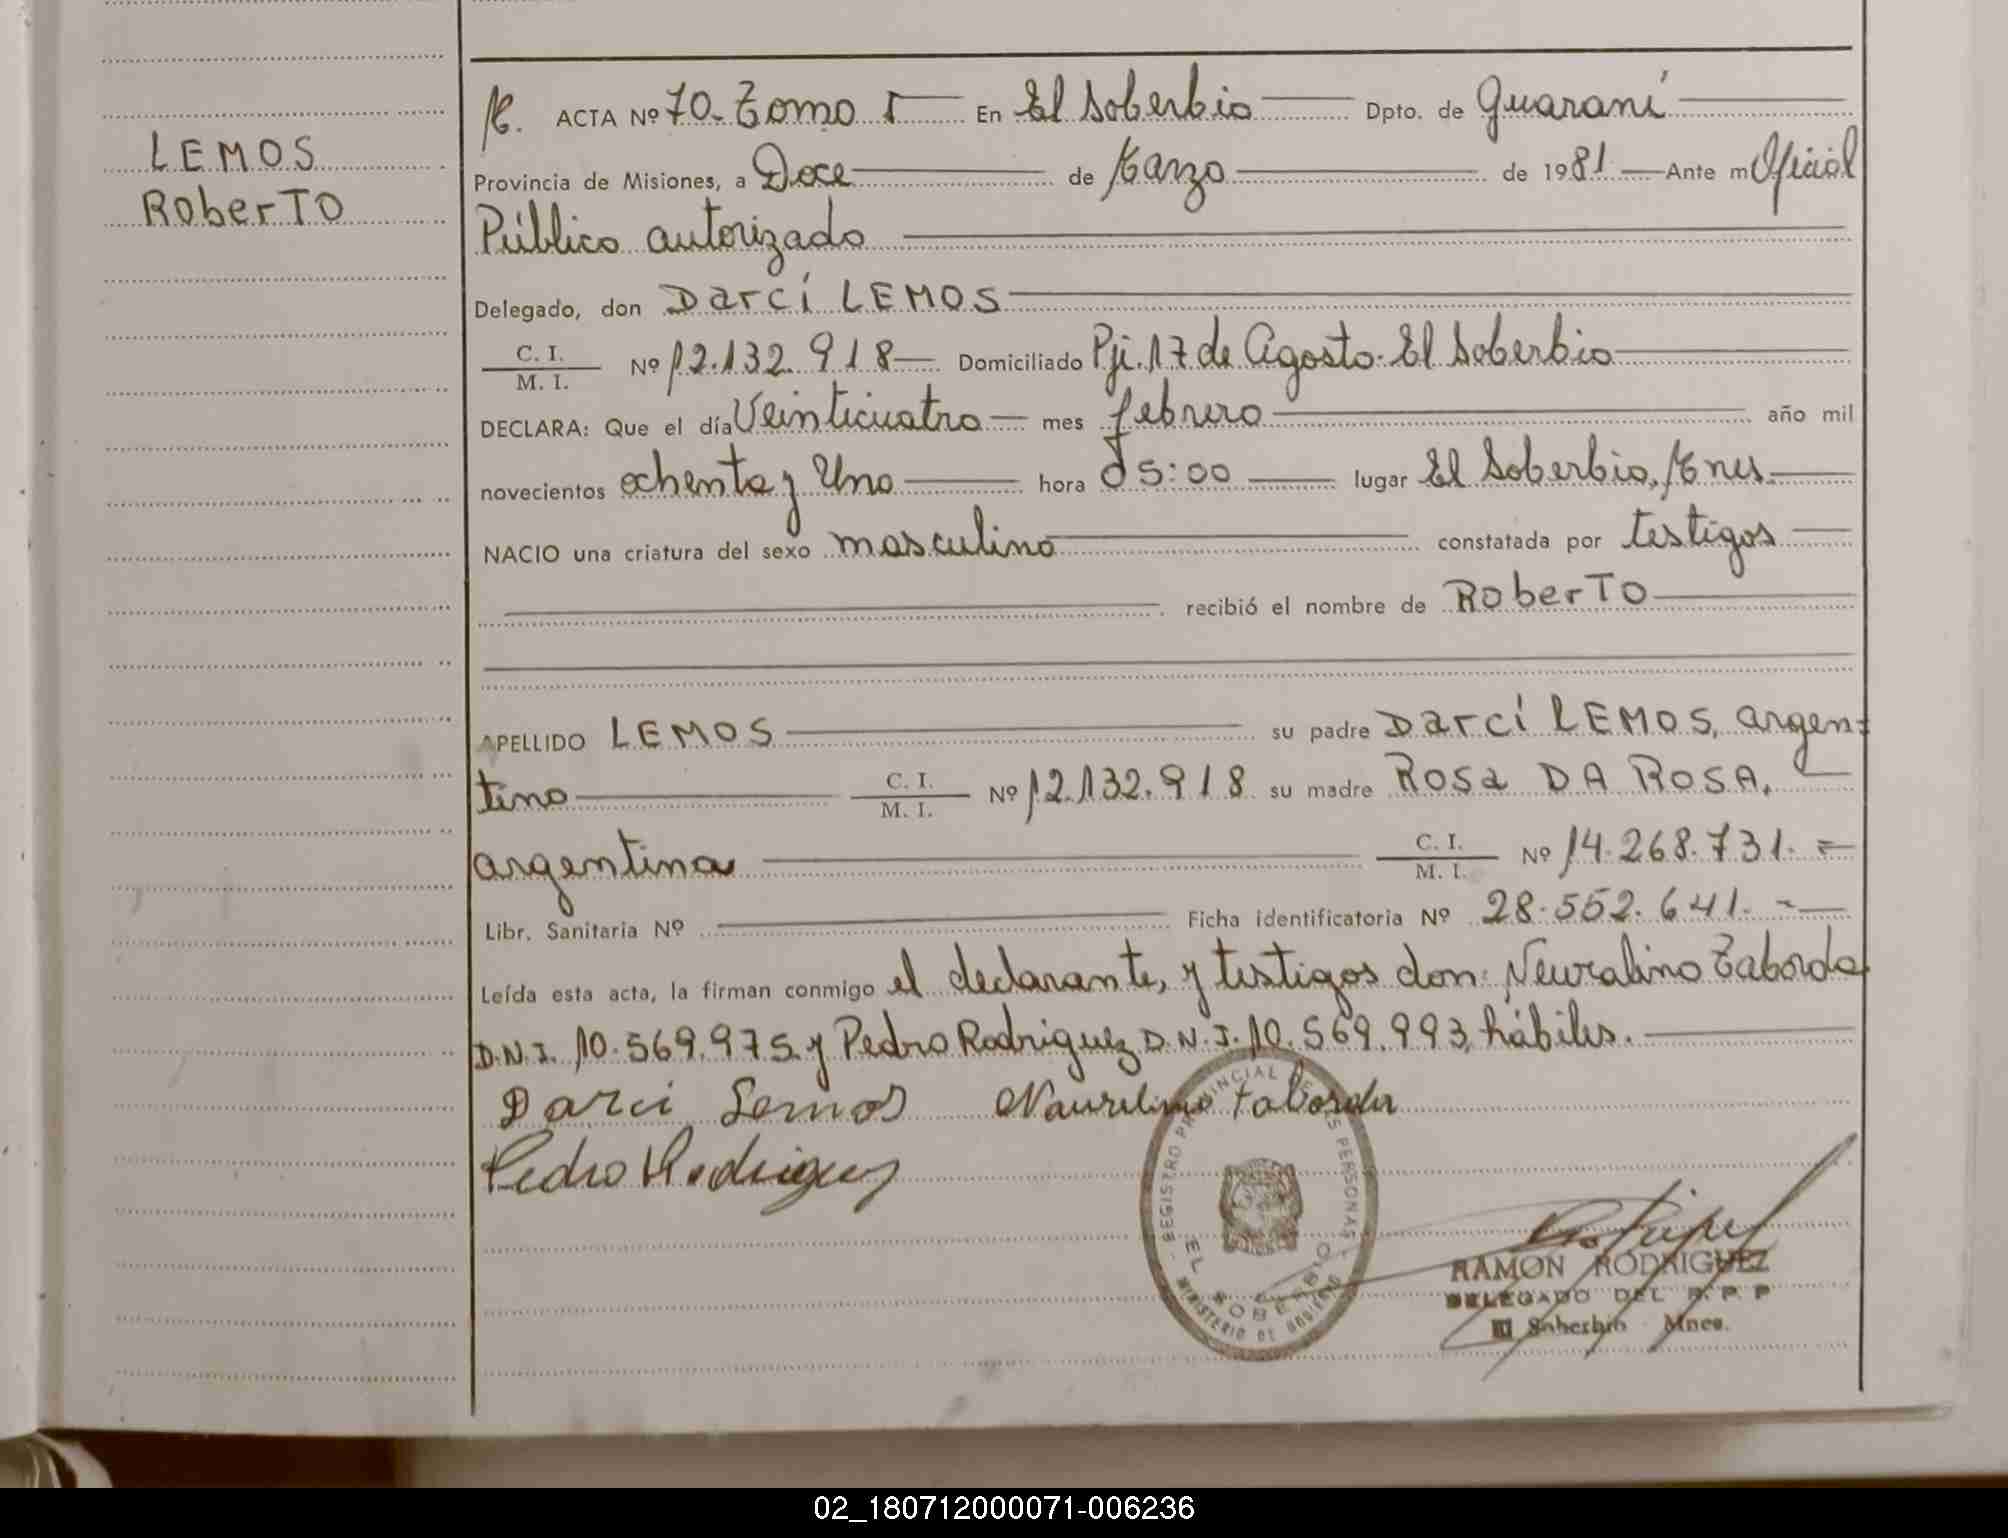 LEMOS
RoberTO
M. ACTA Nº 70. Tomo I En El Soberbio Dpto. de Guaraní
Provincia de Misiones, a Doce de Marzo de 1981 Ante m Oficial
Público autorizado
Delegado, don Darcí LEMOS
C. I.
M. I. Nº 12.132.918 Domiciliado Pje. 17 de Agosto. El Soberbio
DECLARA: Que el día Veinticuatro mes febrero año mil
novecientos ochenta y Uno hora 05:00 lugar El Soberbio, Mnes.
NACIO una criatura del sexo masculino constatada por testigos
recibió el nombre de RoberTO
APELLIDO LEMOS su padre Darcí LEMOS, argen=
tino C. I.
M. I. Nº 12.132.918 su madre Rosa DA ROSA,
argentina C. I.
M. I. Nº 14.268.731. =
Libr. Sanitaria Nº Ficha identificatoria Nº 28.552.641. -
Leída esta acta, la firman conmigo el declarante, y testigos don: Neuralino Taborda
D.N.I. 10.569.975 y Pedro Rodriguez D.N.I. 10.569.993, hábiles.
Darci Lemos Naurelino Taborda
Pedro Rodriguez
REGISTRO PROVINCIAL DE LAS PERSONAS
EL SOBERBIO
MINISTERIO DE GOBIERNO
RAMON RODRIGUEZ
DELEGADO DEL R. P. P
El Soberbio Mnes.
02_180712000071-006236